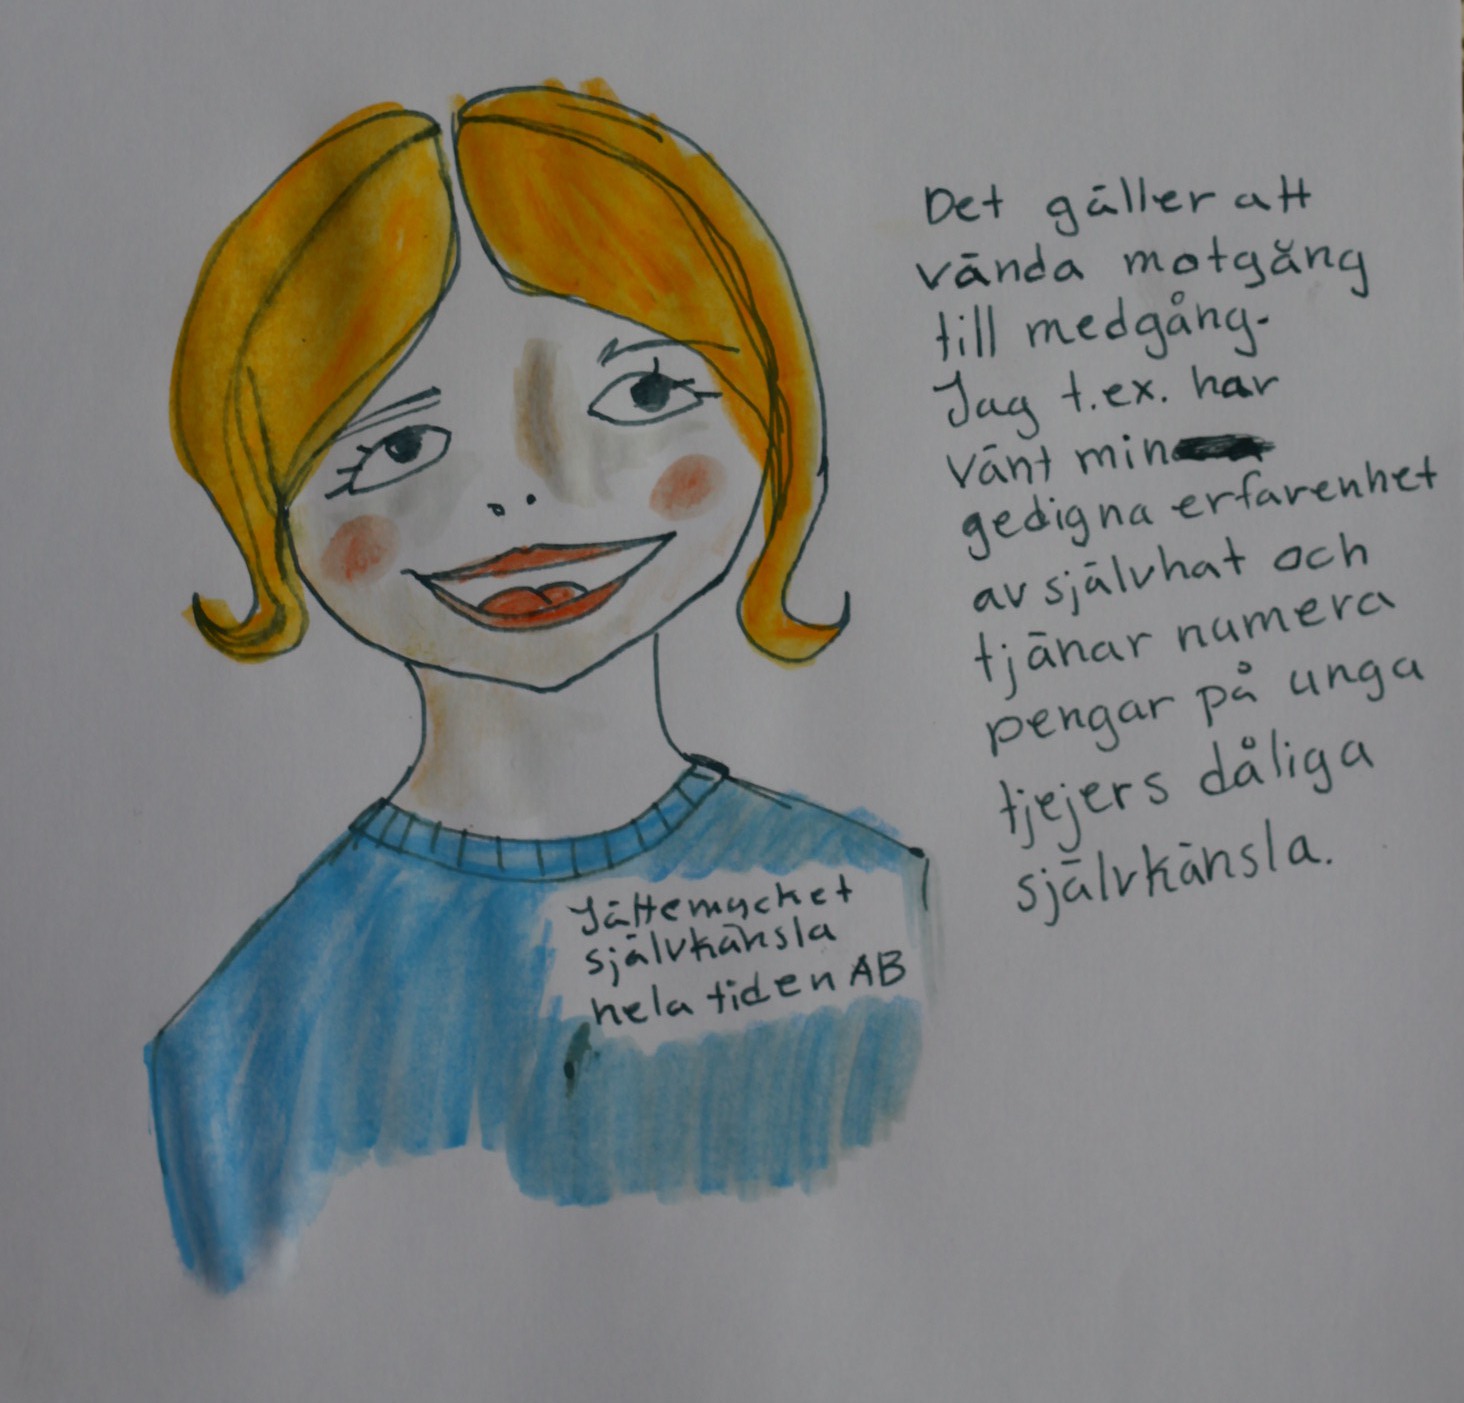 Det gäller att
vända motgång
till medgång.
Jag t.ex. har
vänt min
gedigna erfarenhet
av självhat och
tjänar numera
pengar på unga
tjejers dåliga
självkänsla.
Jättemycket
självkänsla
hela tiden AB